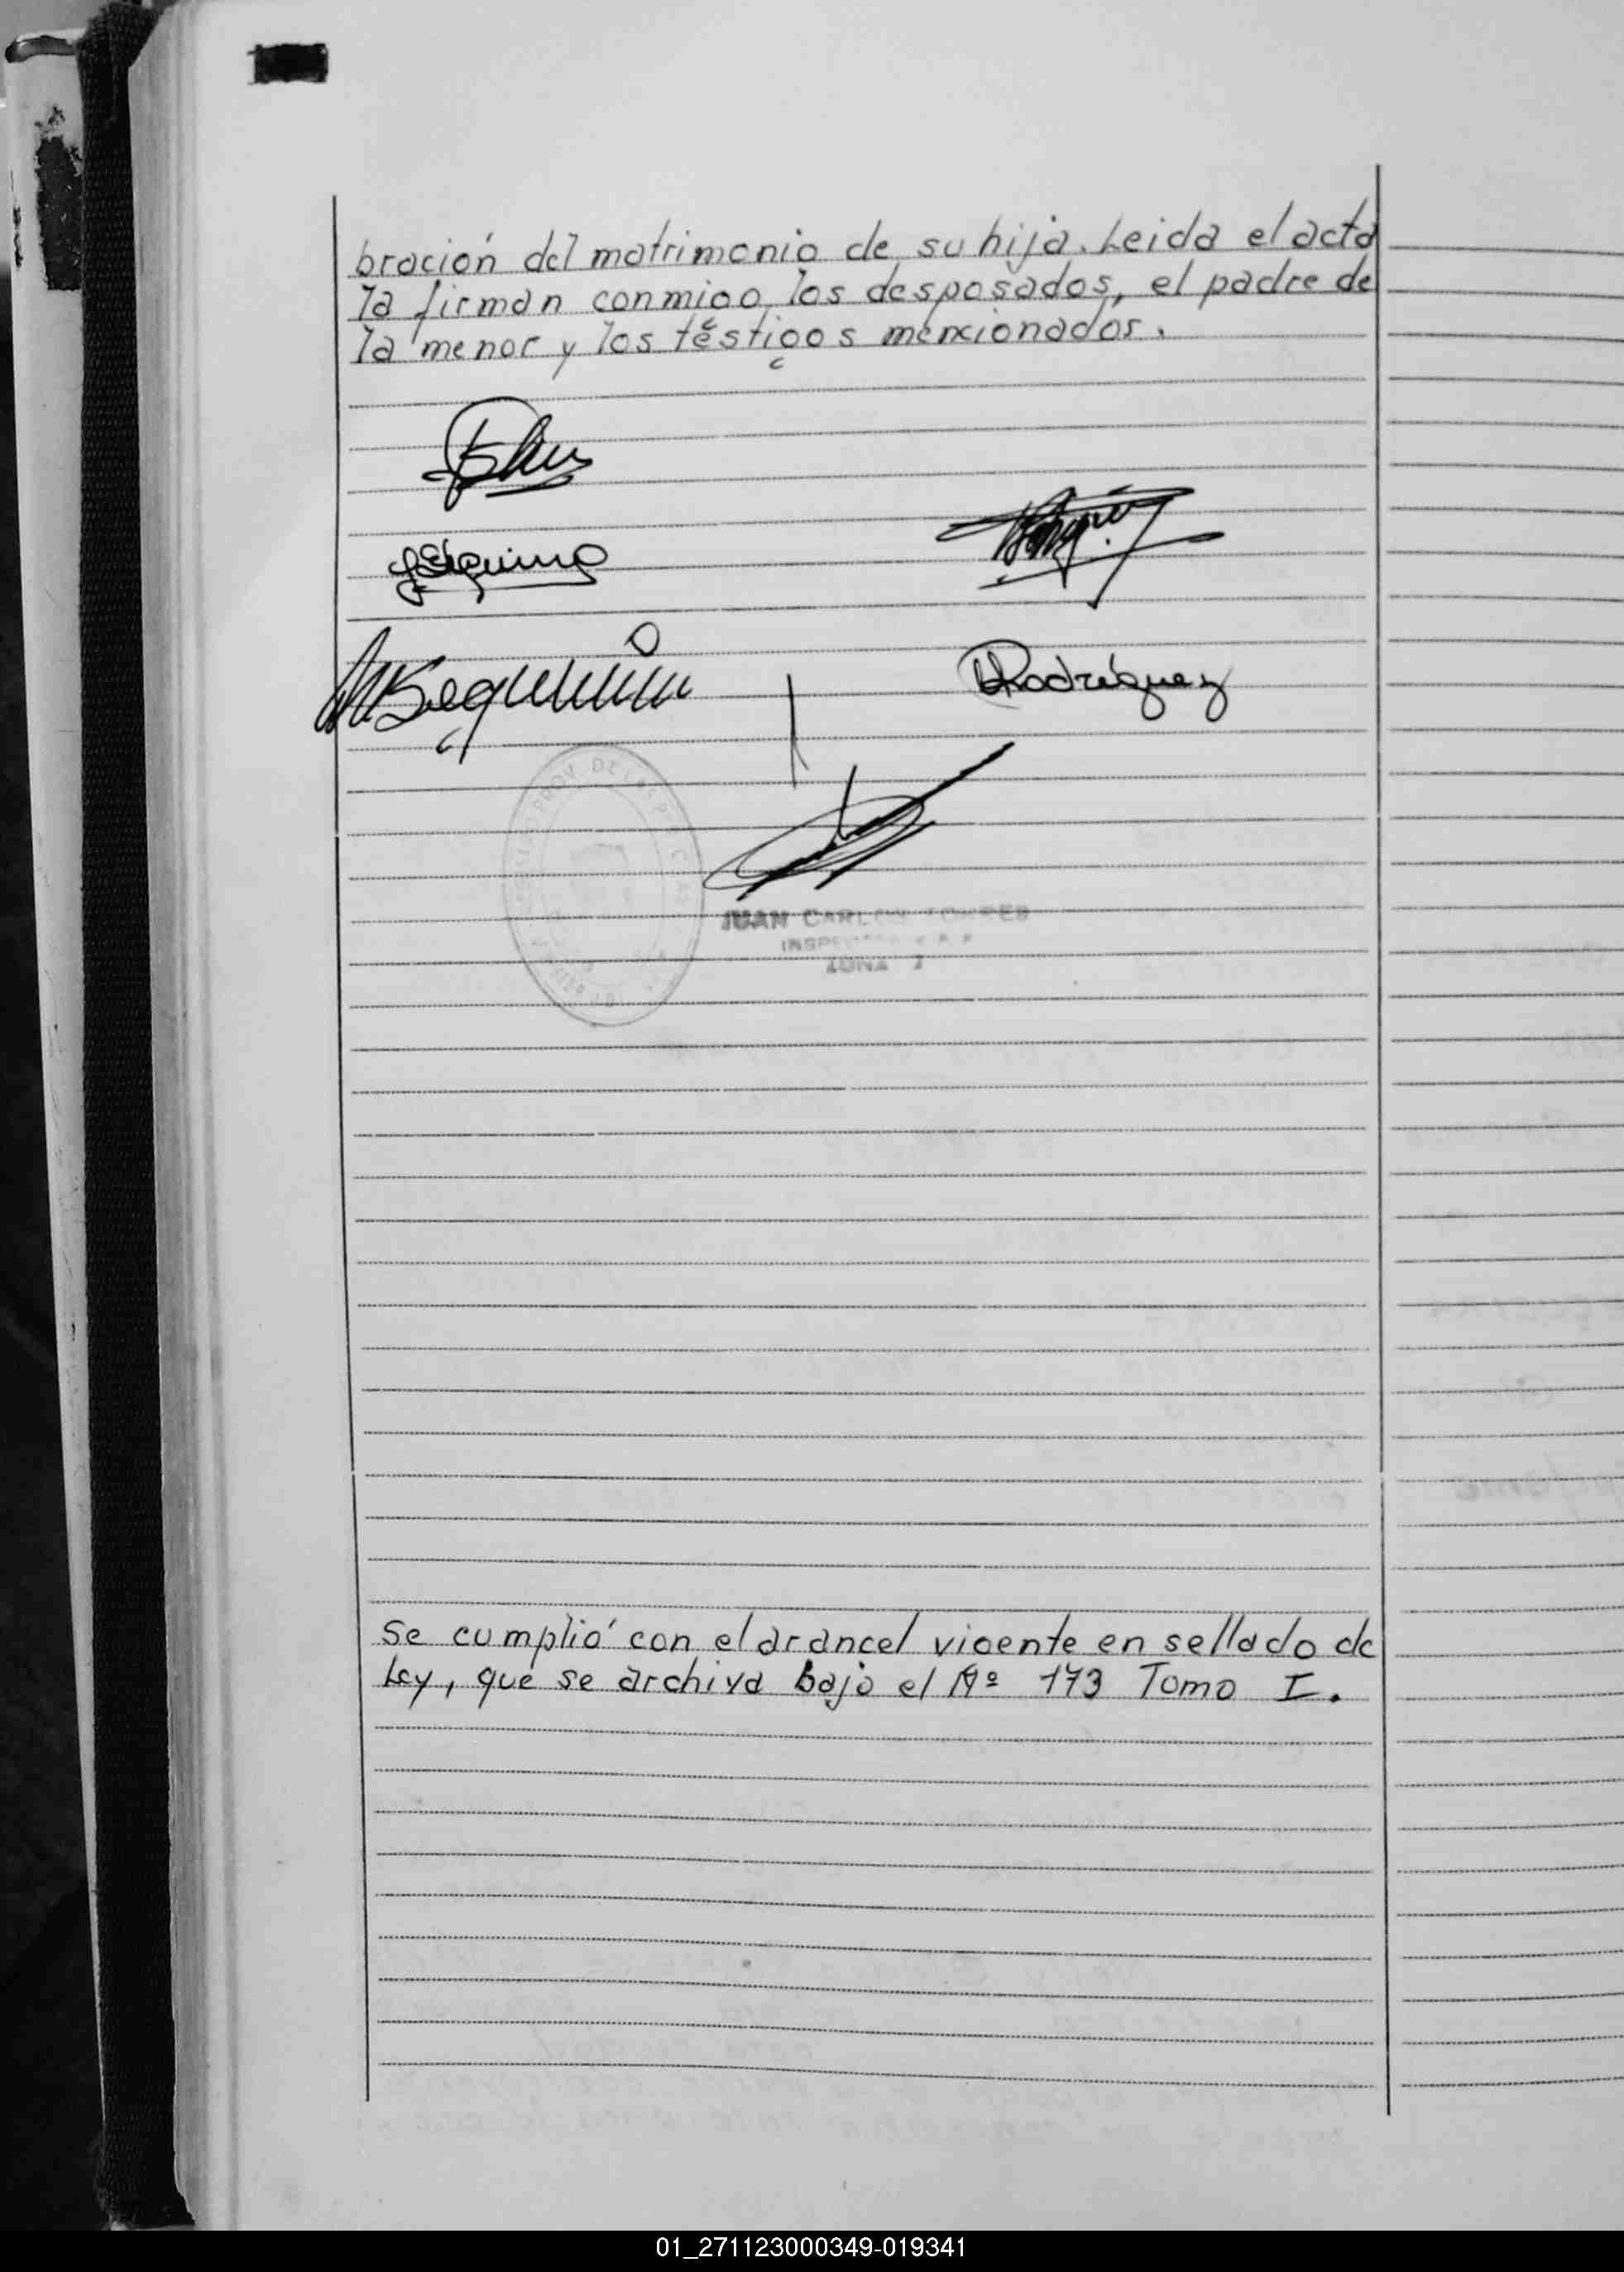 bración del matrimonio de su hija. Leida el acta
la firman conmigo los desposados, el padre de
la menor y los testigos mencionados.
Rodríguez
PROV DE LAS
JUAN CARLOS TORRES
INSPECTOR
ZONA 7
Se cumplió con el arancel vigente en sellado de
Ley, que se archiva bajo el Nº 173 Tomo I.
01_271123000349-019341